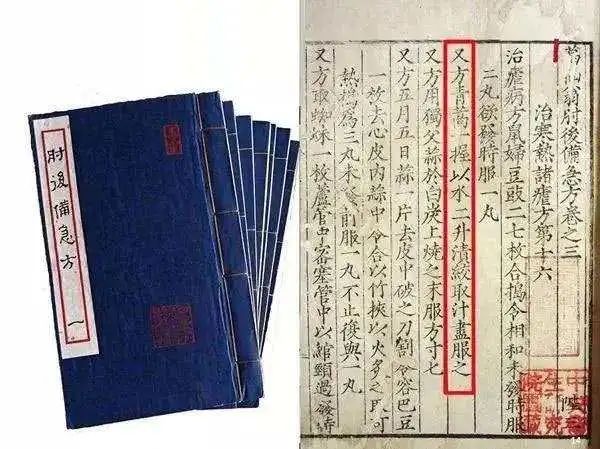 肘後備急方 一
葛仙翁肘後備急方卷之三
治寒熱諸瘧方第十六
治瘧病方鼠婦豆豉二七枚合搗令相和未發時服
二丸欲發時服一丸
又方青蒿一握以水二升漬絞取汁盡服之
又方用獨父蒜於白炭上燒之末服方寸七
又方五月五日蒜一片去皮中破之刀割令容巴豆
一枚去心皮內蒜中令合以竹挾以火炙之取可
熱搗爲三丸未發前服一丸不止復與一丸
又方取蜘蛛一枚蘆管中密塞管中以綰頸過發時